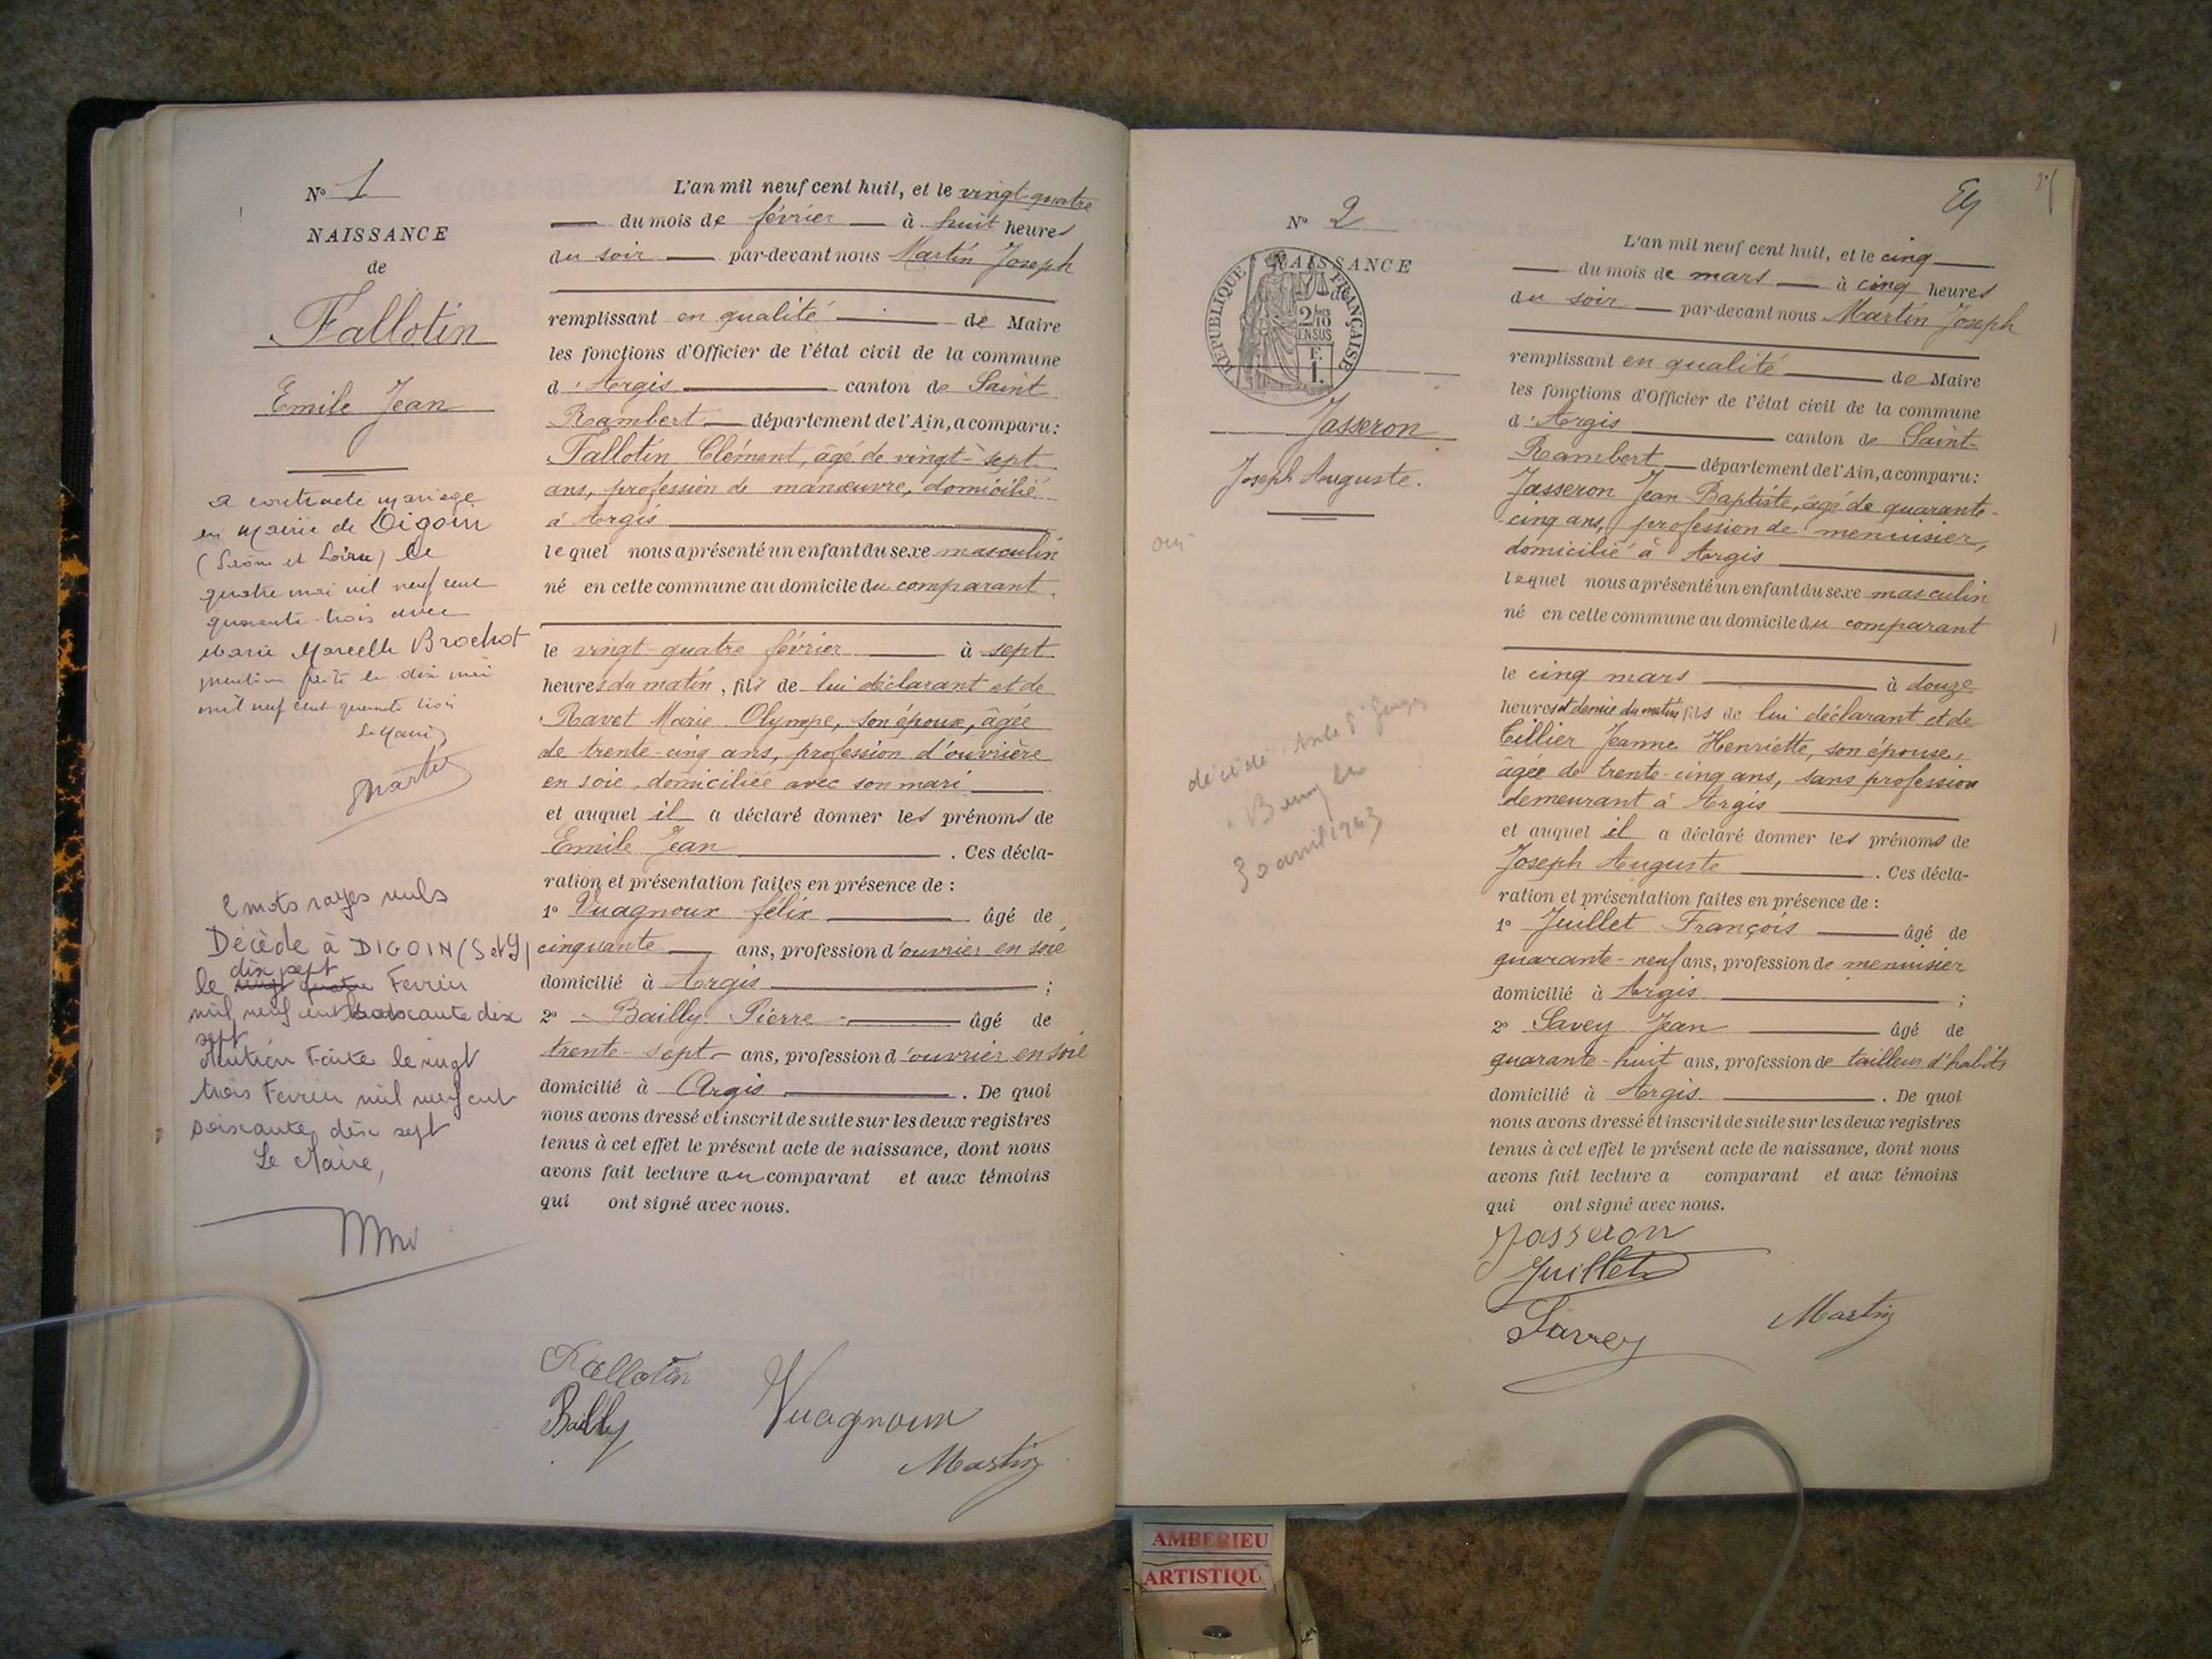 N° 1
NAISSANCE
de
Fallotin
Emile Jean
a contracté mariage
en mairie de Digoin
(Saône et Loire) le
quatre mai mil neuf cent
quarante-trois avec
Marie Marcelle Brochot
mention faite le dix mai
mil neuf cent quarante trois
Le Maire
Martin
2 mots rayés nuls
Décède à DIGOIN (S et L)
dix sept
le vingt quatre Fevrier
mil neuf cent soixante dix
sept
Mention Faite le vingt
trois Fevrier mil neuf cent
soixante dix sept
Le Maire,
L'an mil neuf cent huit, et le vingt-quatre
du mois de février à huit heures
du soir par-devant nous Martin Joseph
remplissant en qualité de Maire
les fonctions d'Officier de l'état civil de la commune
d'Argis canton de Saint
Rambert département de l'Ain, a comparu:
Fallotin Clément, âgé de vingt-sept
ans, profession de manœuvre, domicilié
à Argis
lequel nous a présenté un enfant du sexe masculin
né en cette commune au domicile du comparant.
le vingt-quatre février à sept
heures du matin, fils de lui déclarant et de
Ravet Marie Olympe, son épouse, âgée
de trente-cinq ans, profession d'ouvrière
en soie, domiciliée avec son mari
et auquel il a déclaré donner les prénoms de
Emile Jean. Ces décla-
ration et présentation faites en présence de :
1° Vuagnoux félix âgé de
cinquante ans, profession d'ouvrier en soie
domicilié à Argis ;
2° Bailly Pierre âgé de
trente-sept ans, profession d'ouvrier en soie
domicilié à Argis. De quoi
nous avons dressé et inscrit de suite sur les deux registres
tenus à cet effet le présent acte de naissance, dont nous
avons fait lecture au comparant et aux témoins
qui ont signé avec nous.
Fallotin
Bailly Vuagnoux
Martin
N° 2
NAISSANCE
de
RÉPUBLIQUE FRANÇAISE
2/10
EN SUS
F.
1.
Jasseron
Joseph Auguste.
oui
décédé
30 avril 1963
L'an mil neuf cent huit, et le cinq
du mois de mars à cinq heures
du soir par-devant nous Martin Joseph
remplissant en qualité de Maire
les fonctions d'Officier de l'état civil de la commune
d'Argis canton de Saint-
Rambert département de l'Ain, a comparu:
Jasseron Jean Baptiste, âgé de quarante-
cinq ans, profession de menuisier,
domicilié à Argis
lequel nous a présenté un enfant du sexe masculin
né en cette commune au domicile du comparant
le cinq mars à douze
heures et demie du matin fils de lui déclarant et de
Tillier Jeanne Henriette, son épouse,
âgée de trente-cinq ans, sans profession
demeurant à Argis
et auquel il a déclaré donner les prénoms de
Joseph Auguste. Ces décla-
ration et présentation faites en présence de :
1° Juillet François âgé de
quarante-neuf ans, profession de menuisier
domicilié à Argis ;
2° Savey Jean âgé de
quarante-huit ans, profession de tailleur d'habits
domicilié à Argis. De quoi
nous avons dressé et inscrit de suite sur les deux registres
tenus à cet effet le présent acte de naissance, dont nous
avons fait lecture a comparant et aux témoins
qui ont signé avec nous.
Jasseron
Juillet
Savey Martin
AMBERIEU
ARTISTIQU